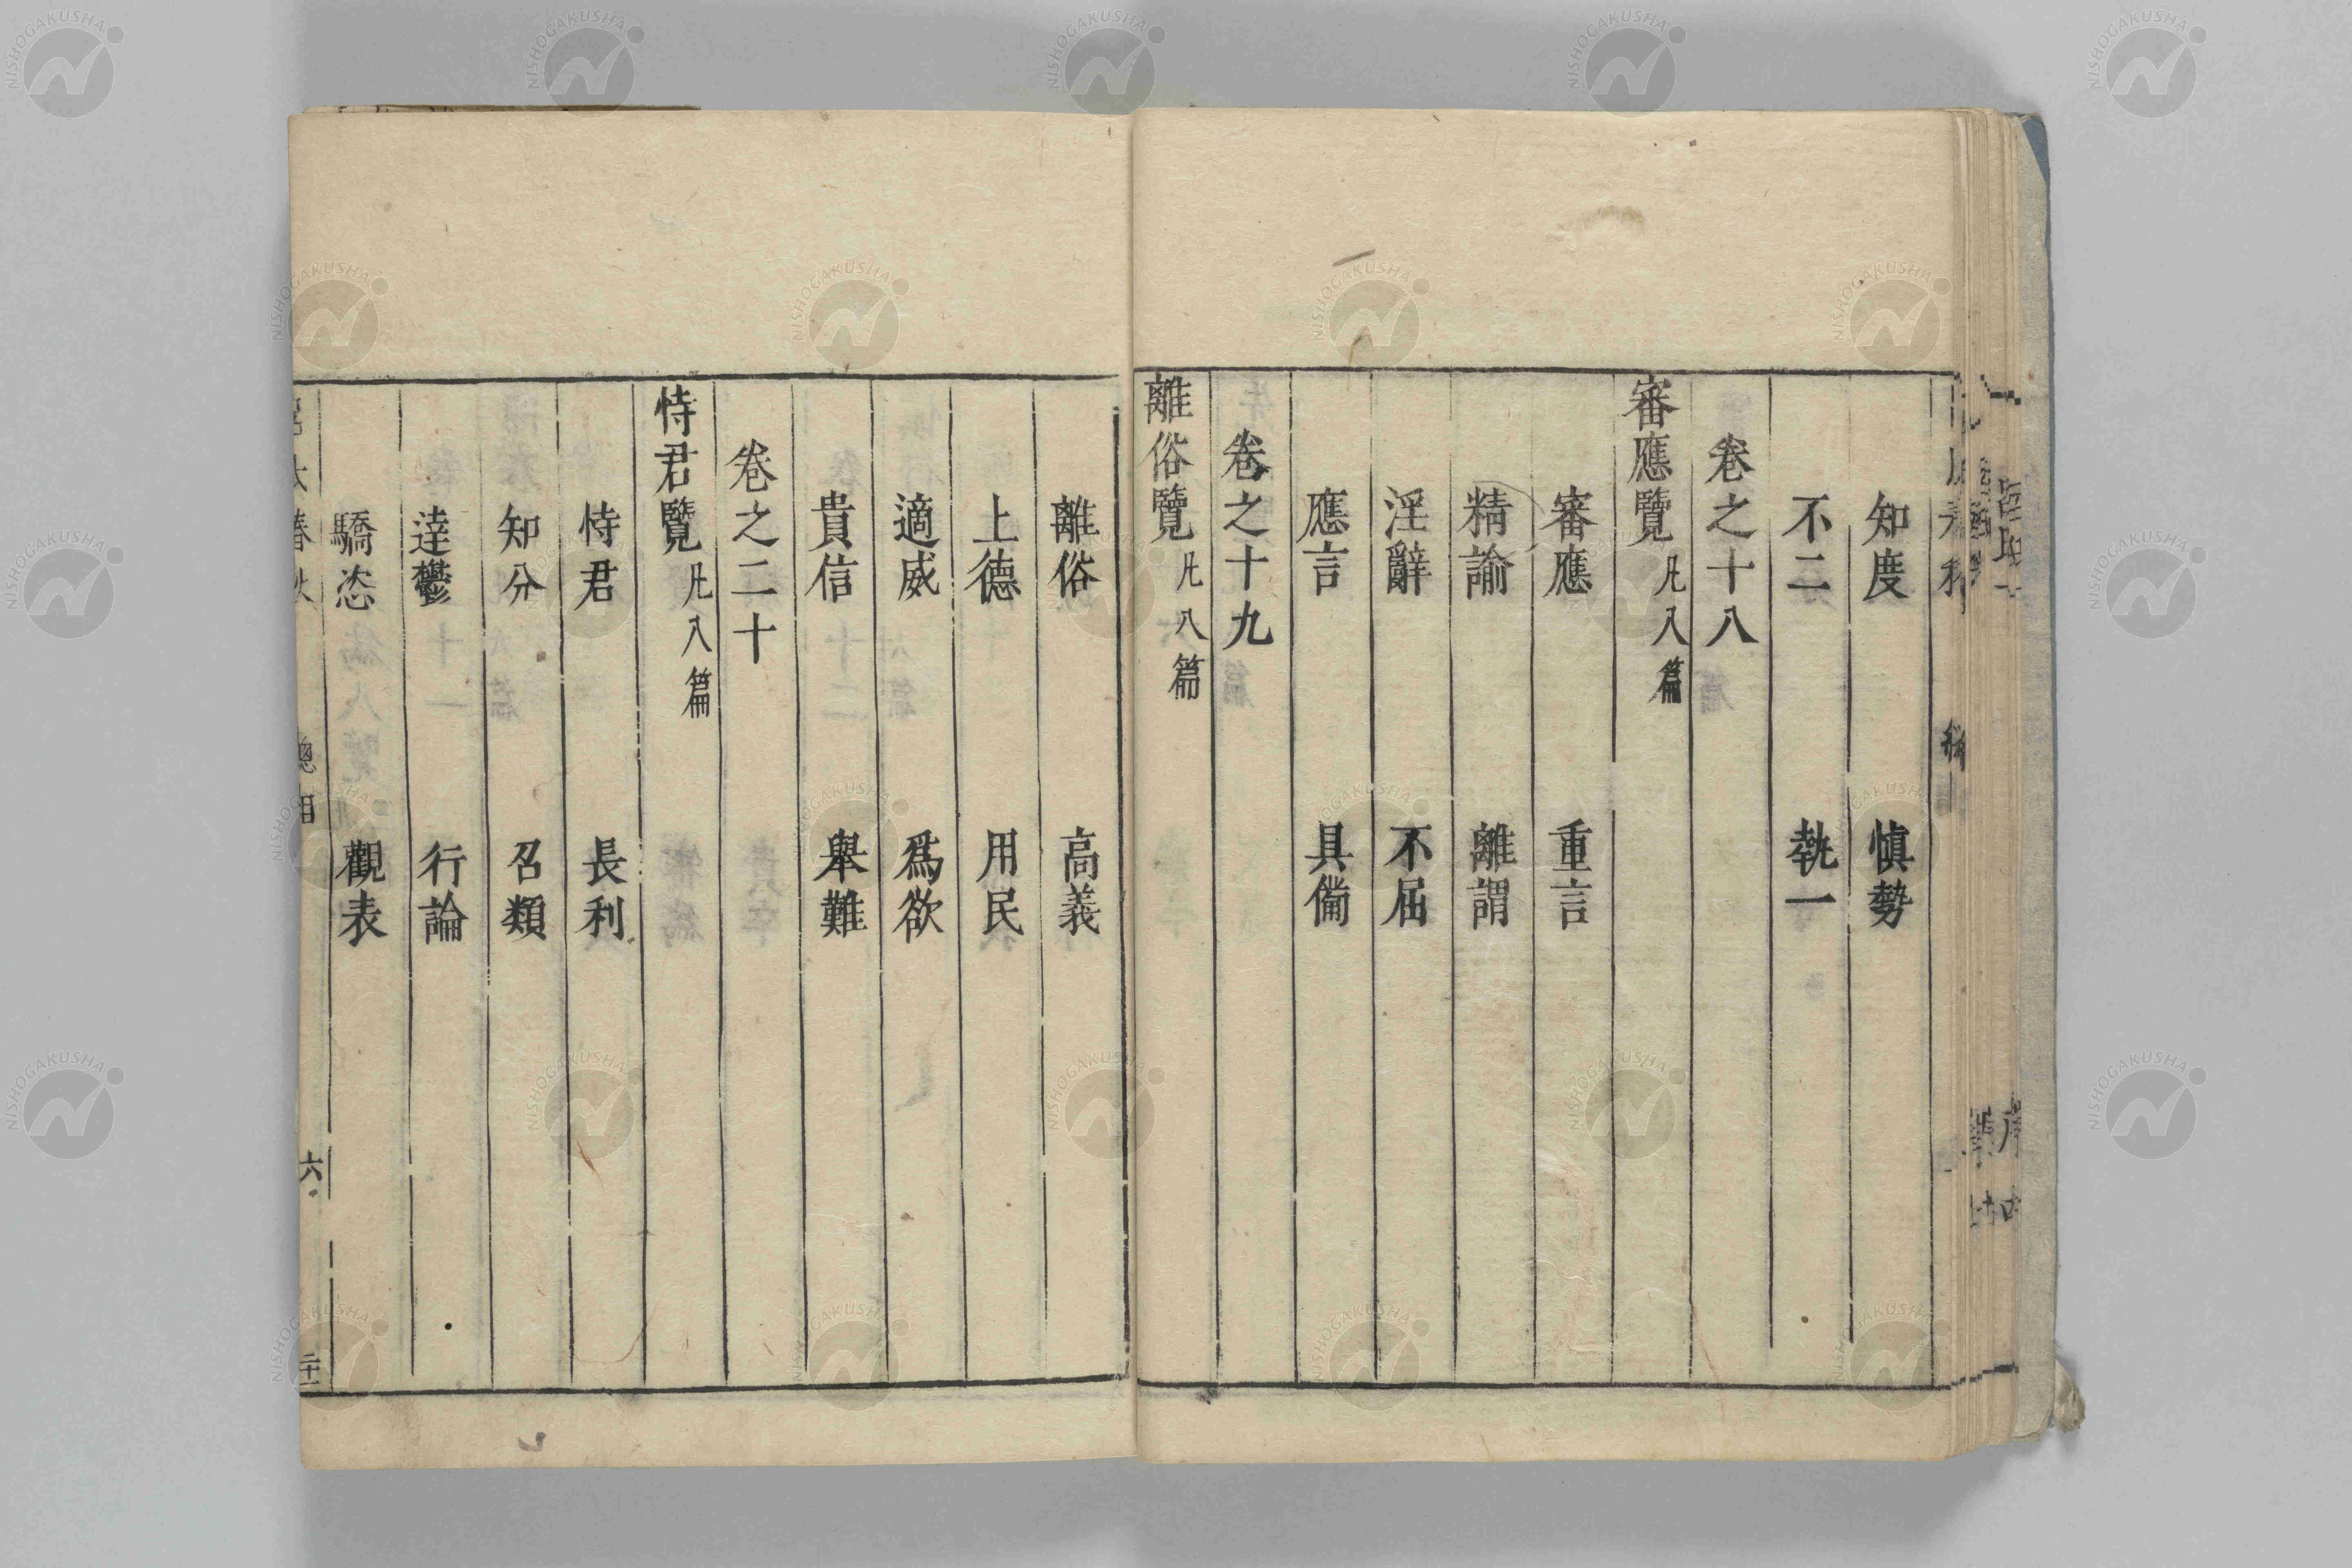 知度　慎勢
不二　執一
卷之十八
審應覽 凡八篇
審應　重言
精諭　離謂
淫辭　不屈
應言　具僃
卷之十九
離俗覽 凡八篇
離俗　高義
上德　用民
適威　爲欲
貴信　舉難
卷之二十
恃君覽 凡八篇
恃君　長利
知分　召類
達鬱　行論
驕恣　觀表
春
六
NISHOGAKUSHA